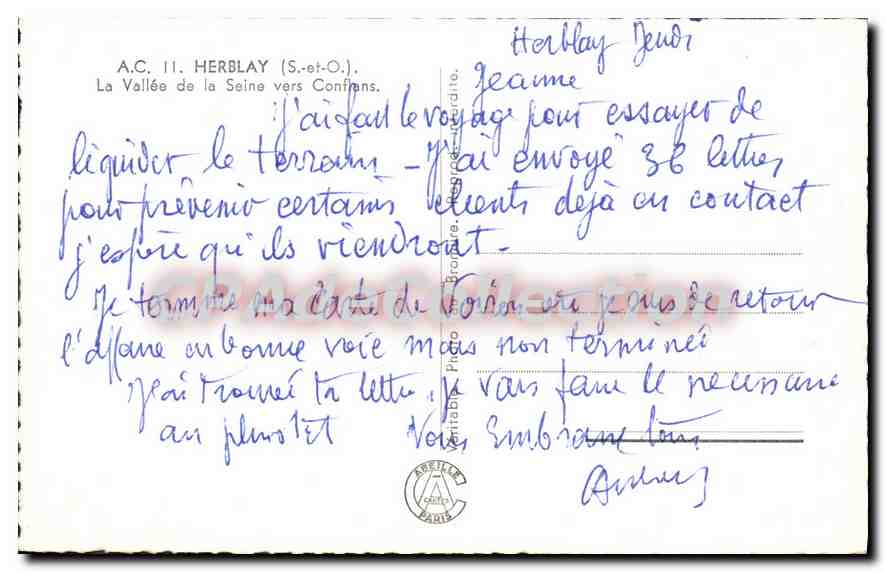 A.C. 11. HERBLAY (S.-et-O.).
La Vallée de la Seine vers Conflans.
Herblay Jeudi
Jeanne
J'ai fait le voyage pour essayer de
liquider le terrain - J'ai envoyé 36 lettres
pour prévenir certains clients déjà en contact
j'espère qu'ils viendront -
Je termine ma carte de Voiron où je suis de retour
l'affaire en bonne voie mais non terminée
J'ai trouvé ta lettre, je vais faire le nécessaire
au plus tôt Vous Embrasse tous
Véritable Photo au Bromure. Reprod. interdite.
CPA de Collection
ABEILLE
CARTES
PARIS